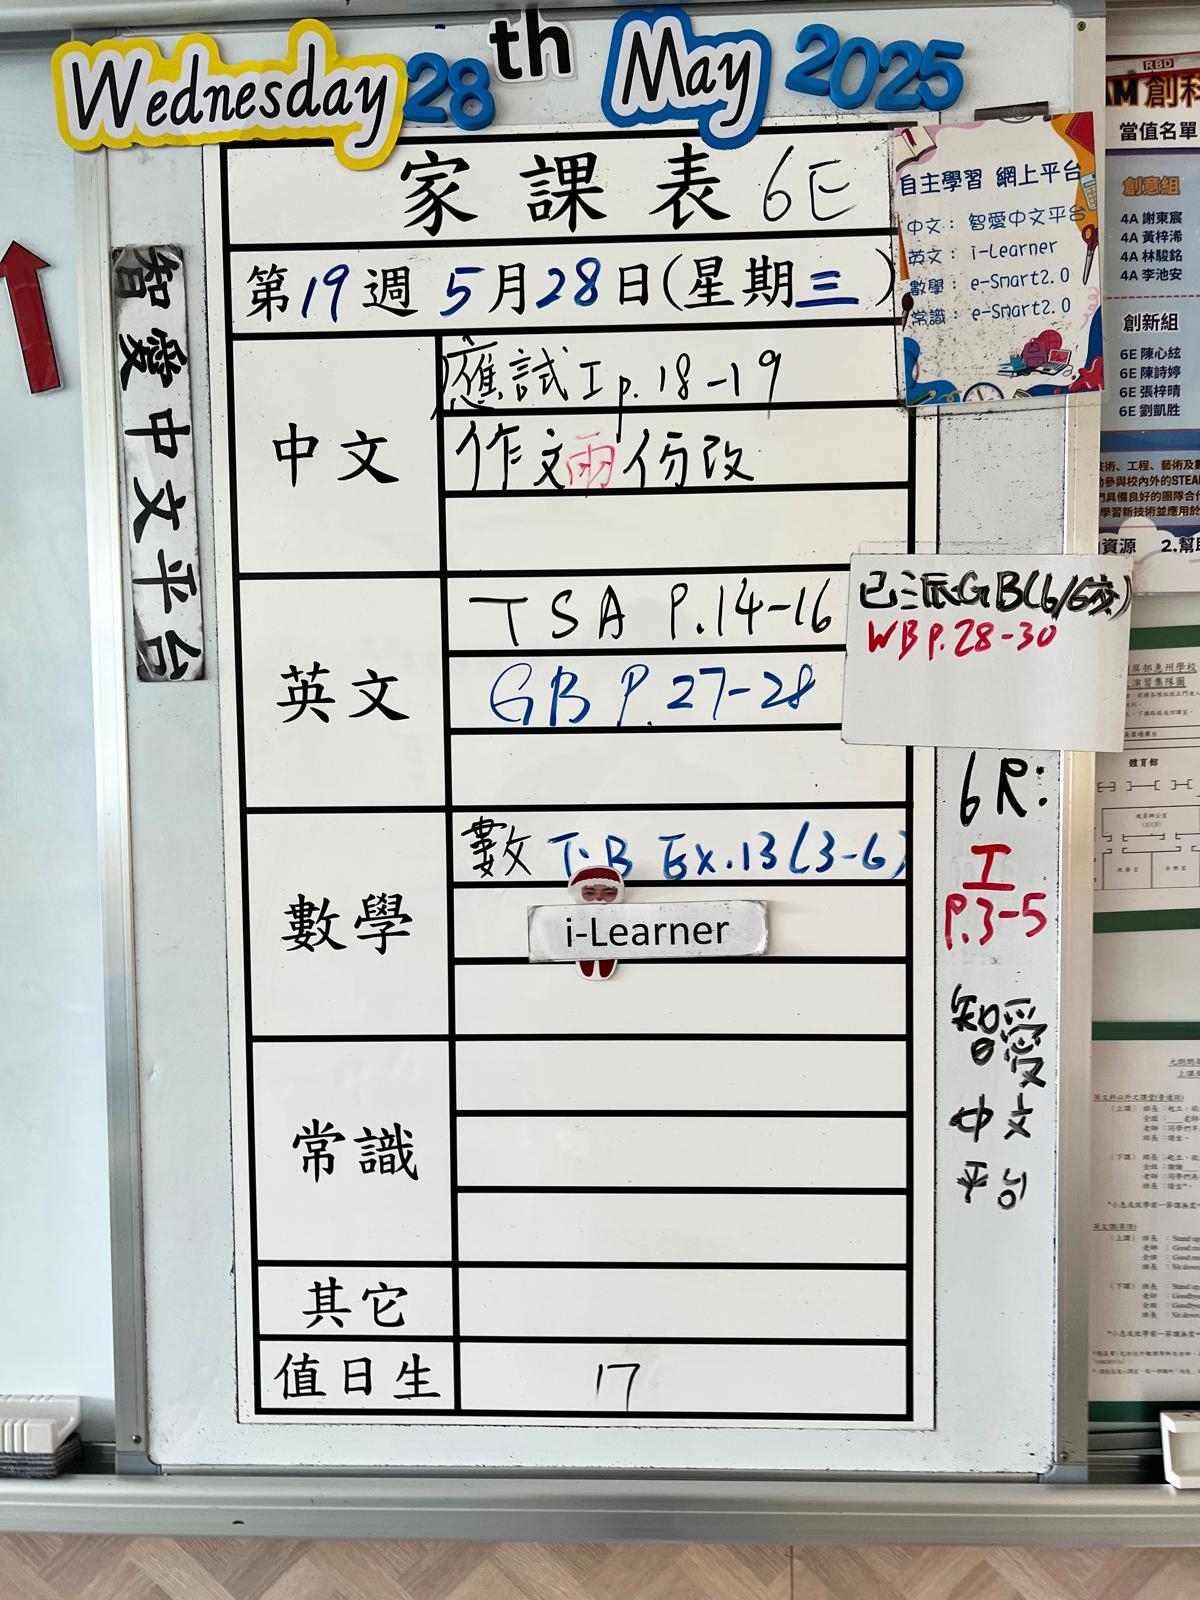 Wednesday 28th May 2025
家課表 6E
第19週 5月28日(星期三)
中文
應試工p.18-19
作文兩份改
英文
TSA P.14-16
GB P.27-28
數學
數 T.B Ex.13(3-6)
i-Learner
常識
其它
值日生
17
智愛中文平台
自主學習 網上平台
中文：智愛中文平台
英文：i-Learner
數學：e-Smart2.0
常識：e-Smart2.0
已派GB(6/6交)
WB P.28-30
6R:
工
P.3-5
智愛
中文
平台
RBD
AM 創科
當值名單
創意組
4A 謝東宸
4A 黃梓浠
4A 林駿銘
4A 李池安
創新組
6E 陳心絃
6E 陳詩婷
6E 張梓晴
6E 劉凱胜
技術、工程、藝術及數
參與校內外的STEA
具備良好的團隊合作
學習新技術並應用於
資源 2.幫助
體育館